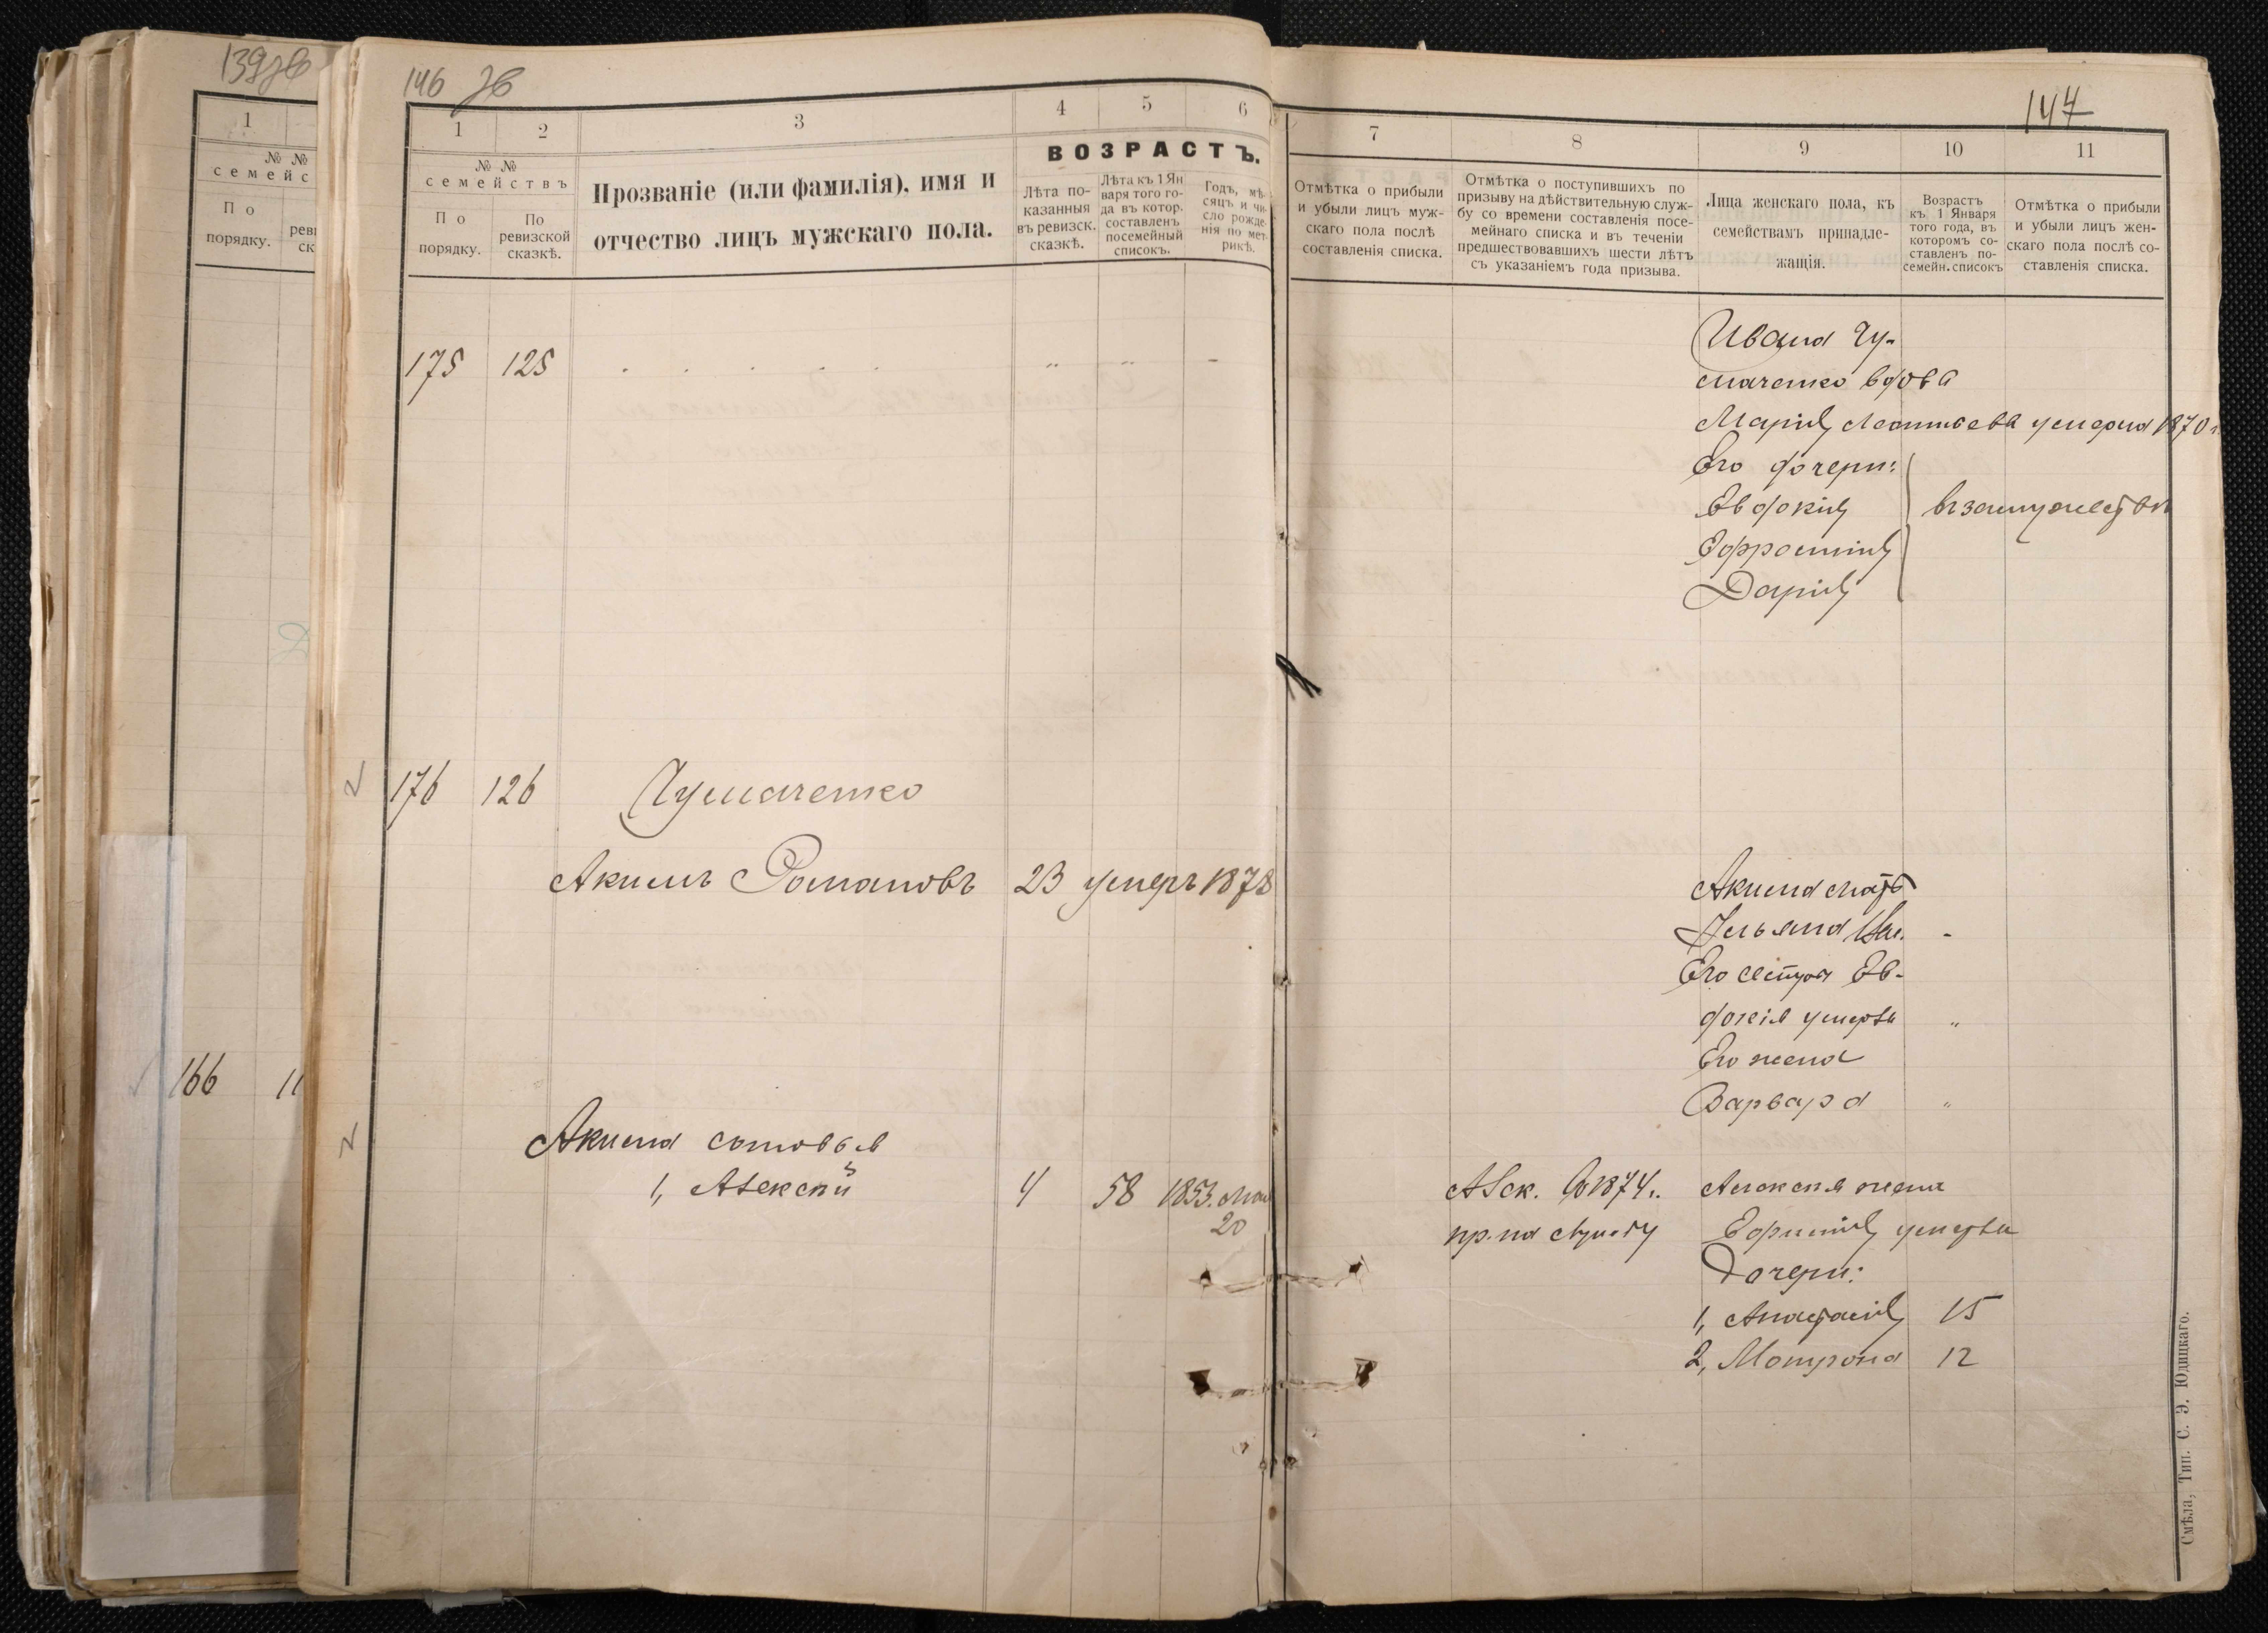 139 зв
1
№ №
семейс
По
порядку.
166
11
146 зв
1
2
3
4
5
6
№ №
семействъ
По
порядку.
По
ревизской
сказкѣ.
Прозваніе (или фамилія), имя и
отчество лицъ мужскаго пола.
ВОЗРАСТЪ.
Лѣта по-
казанныя
въ ревизск.
сказкѣ.
Лѣта къ 1 Ян
варя того го-
да въ котор.
составленъ
посемейный
списокъ.
Годъ, мѣ-
сяцъ и чи-
сло рожде-
нія по мет-
рикѣ.
175 125
176 126 Чумаченко
Акимъ Романовъ 23 умеръ 1878
Акима сыновья
1, Алексѣй 4 58 1853. Мая
20
147
7
8
9
10
11
Отмѣтка о прибыли
и убыли лицъ муж-
скаго пола послѣ
составленія списка.
Отмѣтка о поступившихъ по
призыву на дѣйствительную служ-
бу со времени составленія посе-
мейнаго списка и въ теченіи
предшествовавшихъ шести лѣтъ
съ указаніемъ года призыва.
Лица женскаго пола, къ
семействамъ принадле-
жащія.
Возрастъ
къ 1 Января
того года, въ
которомъ со-
ставленъ по-
семейн. списокъ
Отмѣтка о прибыли
и убыли лицъ жен-
скаго пола послѣ со-
ставленія списка.
Ивана Чу-
маченко вдова
Марія Леонтьева умерла 1870 г.
Его дочери:
Евдокія
въ замужествѣ
Ефросинія
Дарія
Акима мать
Ульяна
Его сестра Ев-
докія умерла
Его жена
Варвара
1874 Алексѣя жена
Ефимія умерла
Дочери:
1, Анастасія 15
2, Матрона 12
Смѣла, Тип. С. Э. Юдицкаго.